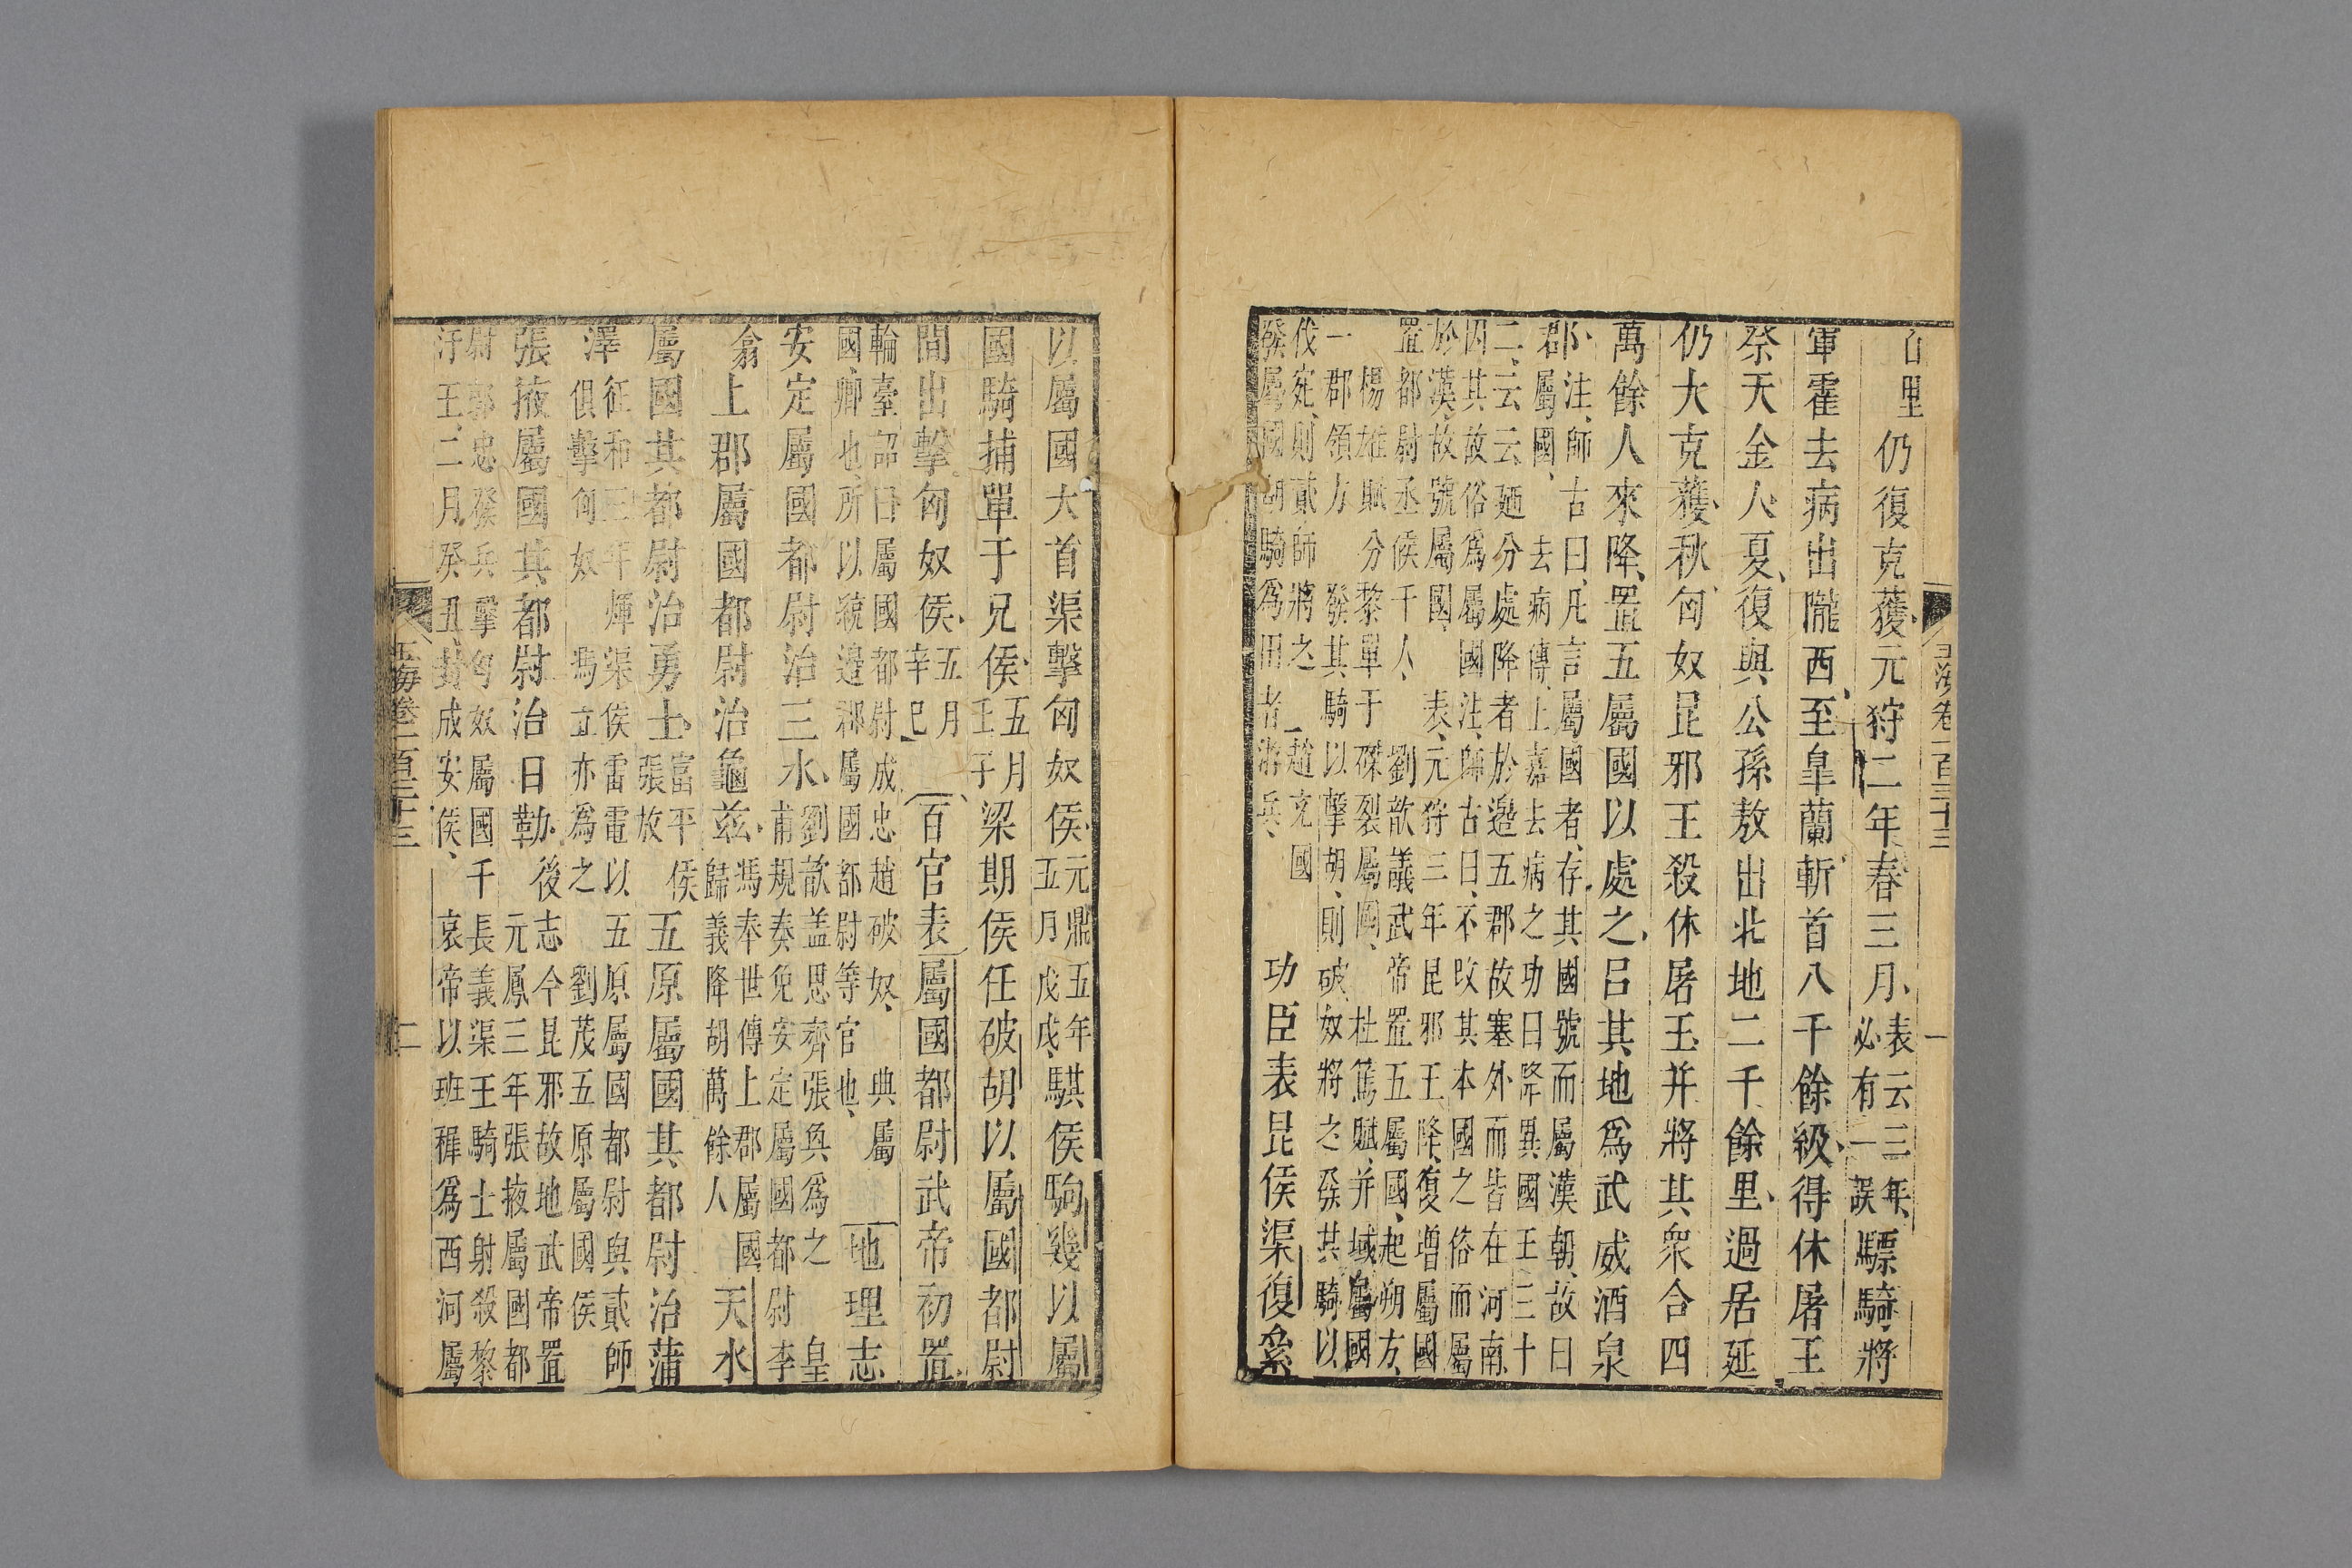 百里仍復克獲元狩二年春三月表云三年必有一誤驃騎將
軍霍去病出隴西至皐蘭斬首八千餘級得休屠王
祭天金人夏復與公孫敖出北地二千餘里過居延
仍大克獲秋匈奴昆邪王殺休屠王并將其衆合四
萬餘人來降置五屬國以處之㠯其地爲武威酒泉
郡注師古曰凡言屬國者存其國號而屬漢朝故曰
屬國去病傳上嘉去病之功曰降異國王三十
二云云廼分處降者於邊五郡故塞外而皆在河南
因其故俗爲屬國注師古曰不改其本國之俗而屬
於漢故號屬國表元狩三年昆邪王降復增屬國
置都尉丞候千人劉歆議武帝置五屬國起朔方
楊雄賦分黎單于磔裂屬國杜篤賦并域屬國
一郡領方發其騎以擊胡則破奴將之發其騎以
伐宛則貳師將之趙充國
發屬國胡騎爲旧者游兵功臣表昆侯渠復絫
以屬國大首渠擊匈奴侯元鼎五年五月戊戌騏侯駒幾以屬
國騎捕單于兄侯五月壬子梁期侯任破胡以屬國都尉
間出擊匈奴侯五月辛巳百官表屬國都尉武帝初置
輪臺詔曰屬國都尉成忠趙破奴典屬
國卿也所以統邊郡屬國都尉等官也地理志
安定屬國都尉治三水劉歆蓋思齊張奐爲之皇
甫規奏免安定屬國都尉李
翕上郡屬國都尉治龜兹馮奉世傳上郡屬國
歸義降胡萬餘人天水
屬國其都尉治勇士富平侯張放五原屬國其都尉治蒲
澤征和三年煇渠侯雷電以五原屬國都尉與貳師
俱擊匈奴馮立亦爲之劉茂五原屬國侯
張掖屬國其都尉治日勒後志今昆邪故地武帝置
元鳳三年張掖屬國都
尉郭忠發兵擊匈奴屬國千長義渠王騎士射殺黎
汙王二月癸丑封成安侯哀帝以班穉爲西河屬
玉海卷一百三十三
一
玉海卷一百三十三
二